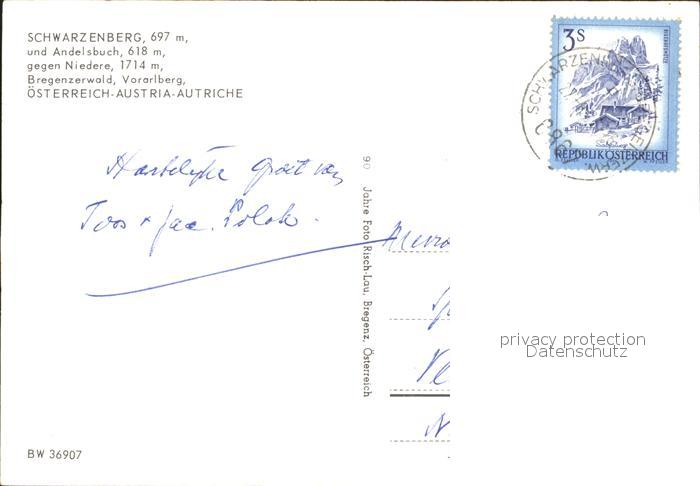 SCHWARZENBERG, 697 m,
und Andelsbuch, 618 m,
gegen Niedere, 1714 m,
Bregenzerwald, Vorarlberg,
ÖSTERREICH-AUSTRIA-AUTRICHE
Hartelijke groet van
Toos + Jac. Polak.
90 Jahre Foto Risch-Lau, Bregenz, Österreich
3S
REPUBLIK ÖSTERREICH
SCHWARZENBERG
privacy protection
Datenschutz
BW 36907